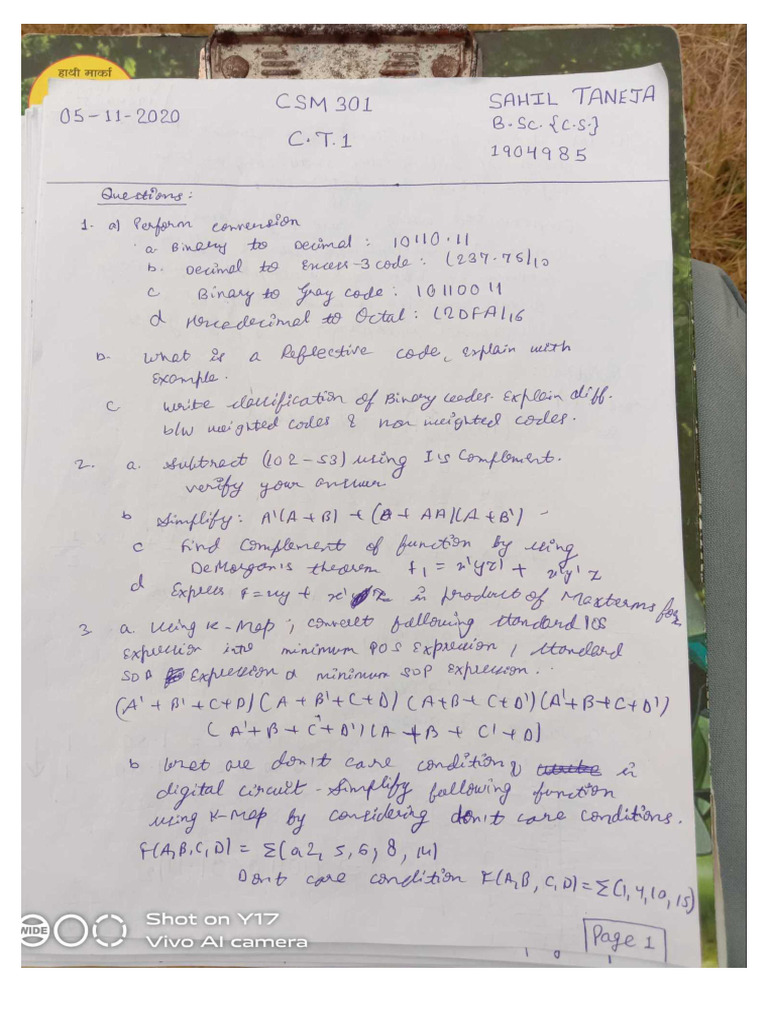 हाथी मार्का
05-11-2020
CSM 301
SAHIL TANEJA
C.T.1
B.Sc. {C.S.}
1904985
Questions:
1. a) Perform conversion
a. Binary to Decimal : 10110.11
b. Decimal to Excess-3 code : (237.75)10
c Binary to Gray code : 10110011
d Hexadecimal to Octal : (2DFA)16
b. What is a Reflective code, explain with
example.
c Write classification of Binary codes. Explain diff.
b/w weighted codes & non weighted codes.
2. a. Subtract (102-53) using 1's Complement.
verify your answer
b Simplify: A'(A+B) + (B+AA)(A+B')
c Find Complement of function by using
DeMorgan's theorem f1 = x'yz' + x'y'z
d Express F=xy + x'z in product of Maxterms for
3. a. Using K-Map ; convert following standard POS
expression into minimum POS Expression, standard
SOP Expression & minimum SOP expression.
(A'+B'+C+D)(A+B'+C+D)(A+B+C+D')(A'+B+C+D')
(A'+B+C'+D')(A+B+C'+D)
b What are don't care conditions in
digital circuit - Simplify following function
using K-Map by considering don't care conditions.
F(A,B,C,D) = Σ(0,2, 5, 6, 8, 14)
Dont care condition F(A,B,C,D)=Σ(1,4,10,15)
Page 1
WIDE
Shot on Y17
Vivo AI camera